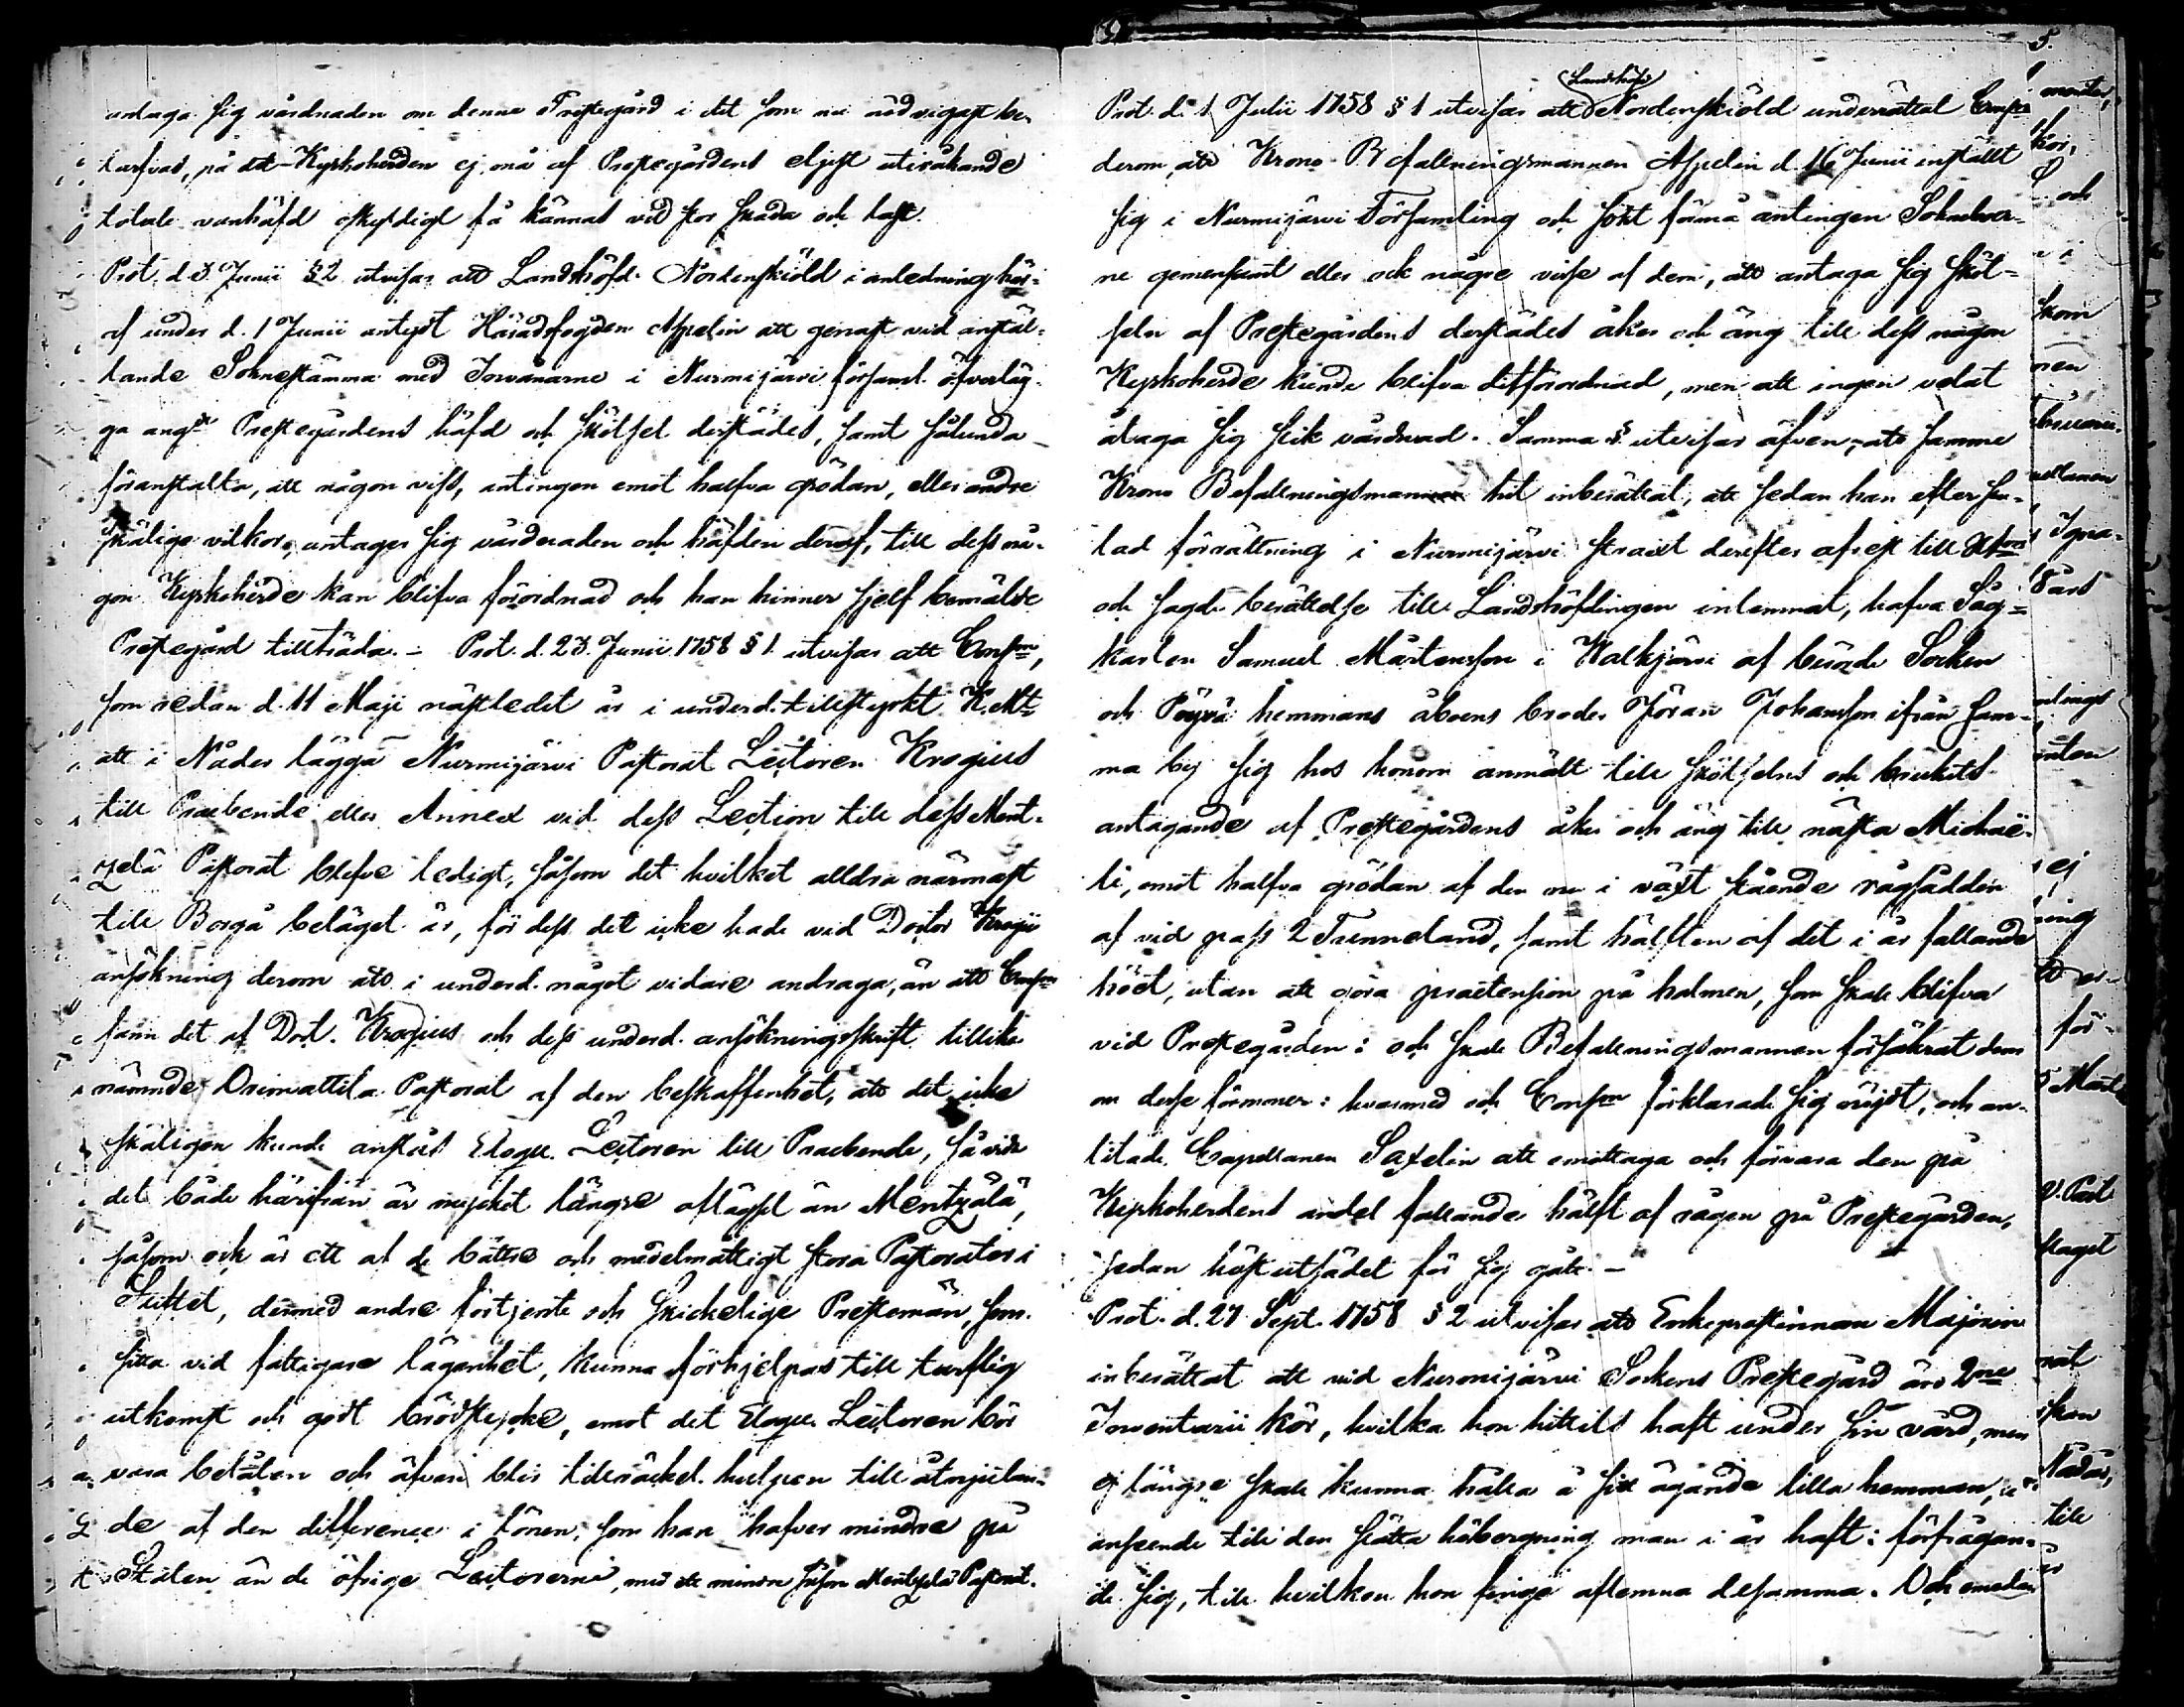 antaga sig vårdnaden om denne Prestegård i det som nu nödvigast be-
turfvas, på det Kyrkoherden ej må af Prestegårdens eljest utirånande
totale vanhäfd oskyldigt få kännas vid stor skada och last.
Prot. d. 3 Junii § 2 utvisar att Landshöfd. Nordenskiöld i anledning här-
af under d. 1 Junii antydt Häradsfogden Aspelin att genast vid anstäl-
lande Soknestämma med Invånarne i Nurmijärvi församl. öfverläg-
ga angde Prestegårdens häfd och skötsel derstädes, samt sålunda
föranstalta, att någon viss, antingen emot halfva grödan, eller andre
skälige vilkor, antager sig vårdnaden och häfden deraf, till dess nå-
gon Kyrkoherde kan blifva förordnad och han hinner sjelf bemälde
Prestegård tillträda. - Prot. d. 23. Junii 1758 § 1. utvisar att Consm,
som redan d. 11 Maji nästledet är i underd. tillstyrkt K. Mt
att i Nåder lägga Nurmijärvi Pastorat Lectoren Krogius
till Praebende eller Annex vid dess Lection till dess Ment-
zelä Pastorat blefve ledigt, såsom det hvilket alldra närmast
till Borgå beläget är, för dess del icke hade vid Doctor Krogii
ansökning derom att i underd. något vidare andraga, än att Consm
fann det af Doct. Krogius och dess underd. ansökningsskrift tillika
nämnde Orimattila Pastorat af den beskaffenhet, att det icke
skäligen kunde anslås Eloqu. Lectoren till Praebende, så vida
det både härifrån är mycket längre aflägset än Mentzälä,
såsom ock är ett af de bättre och medelmåttigt stora Pastorater i
Stiftet, dermed andre förtjente och skickelige Prestemän, som
sitta vid fattigare lägenhet, kunna förhjelpas till tarflig
utkomst och godt brödstycke, emot det Eloqu. Lectoren bör
vara belåten och äfven blir tillräckel. hulpen till åtnjutan-
de af den difference i lönen, som han hafver mindre på
Staten än de öfrige Lectorerne, med ett mindre såsom Mentzelä Pastorat.
5.
Landshöfd
Prot. d. 1 Julii 1758 § 1 utvisar att Nordenskiöld underrättat Consm
derom, att Krono-Befallningsmannen Aspelin d. 16 Junii instält
sig i Nurmijärvi Församling och sökt förmå antingen Soknebor-
ne gemensamt eller ock någre visse af dem, att antaga sig sköt-
seln af Prestegårdens derstädes åker och äng till dess någon
Kyrkoherde kunde blifva ditförordnad, men att ingen velat
åtaga sig slik vårdnad. Samma § utvisar äfven, att samme
Krono Befallningsman hit inberättat, att sedan han efter slu-
tad förrättning i Nurmijärvi straxt derefter afrest till
och sagde berättelse till Landshöfdingen inlemnat, hafva Såg-
karlen Samuel Mårtensson i Walkjärvi af berörde Socken
och Pöyrä hemmans åboens broder Jöran Johansson ifrån sam-
ma by sig hos honom anmält till skötselns och brukets
antagande af Prestegårdens åker och äng till nästa Michae-
li, emot halfva grödan af den nu i växt stående rågsådden
af vid pass 2 Tunneland, samt hälften af det i år fallande
höet, utan att göra praetension på halmen, som skall blifva
vid Prestegården: och skall Befallningsmannen försäkrat dem
om desse förmoner: hvarmed och Consm förklarade sig nöjdt, och an-
litade Capellanen Saxelin att emottaga och förvara den på
Kyrkoherdens andel fallande hälft af rågen på Prestegården,
sedan höstutsädet för sig gått. -
Prot. d. 27 Sept. 1758 § 2 utvisar att Enkeprostinnan Majorin
inberättat att vid Nurmijärvi Sockens Prestegård äro 2ne
Inventarii kor, hvilka hon hittils haft under sin vård, men
ej längre skall kunna hålla å sitt ägande lilla hemman, i
anseende till den slätta höbergning man i år haft: förfrågan-
de sig, till hvilken hon finge aflemna desamma. Och emedan